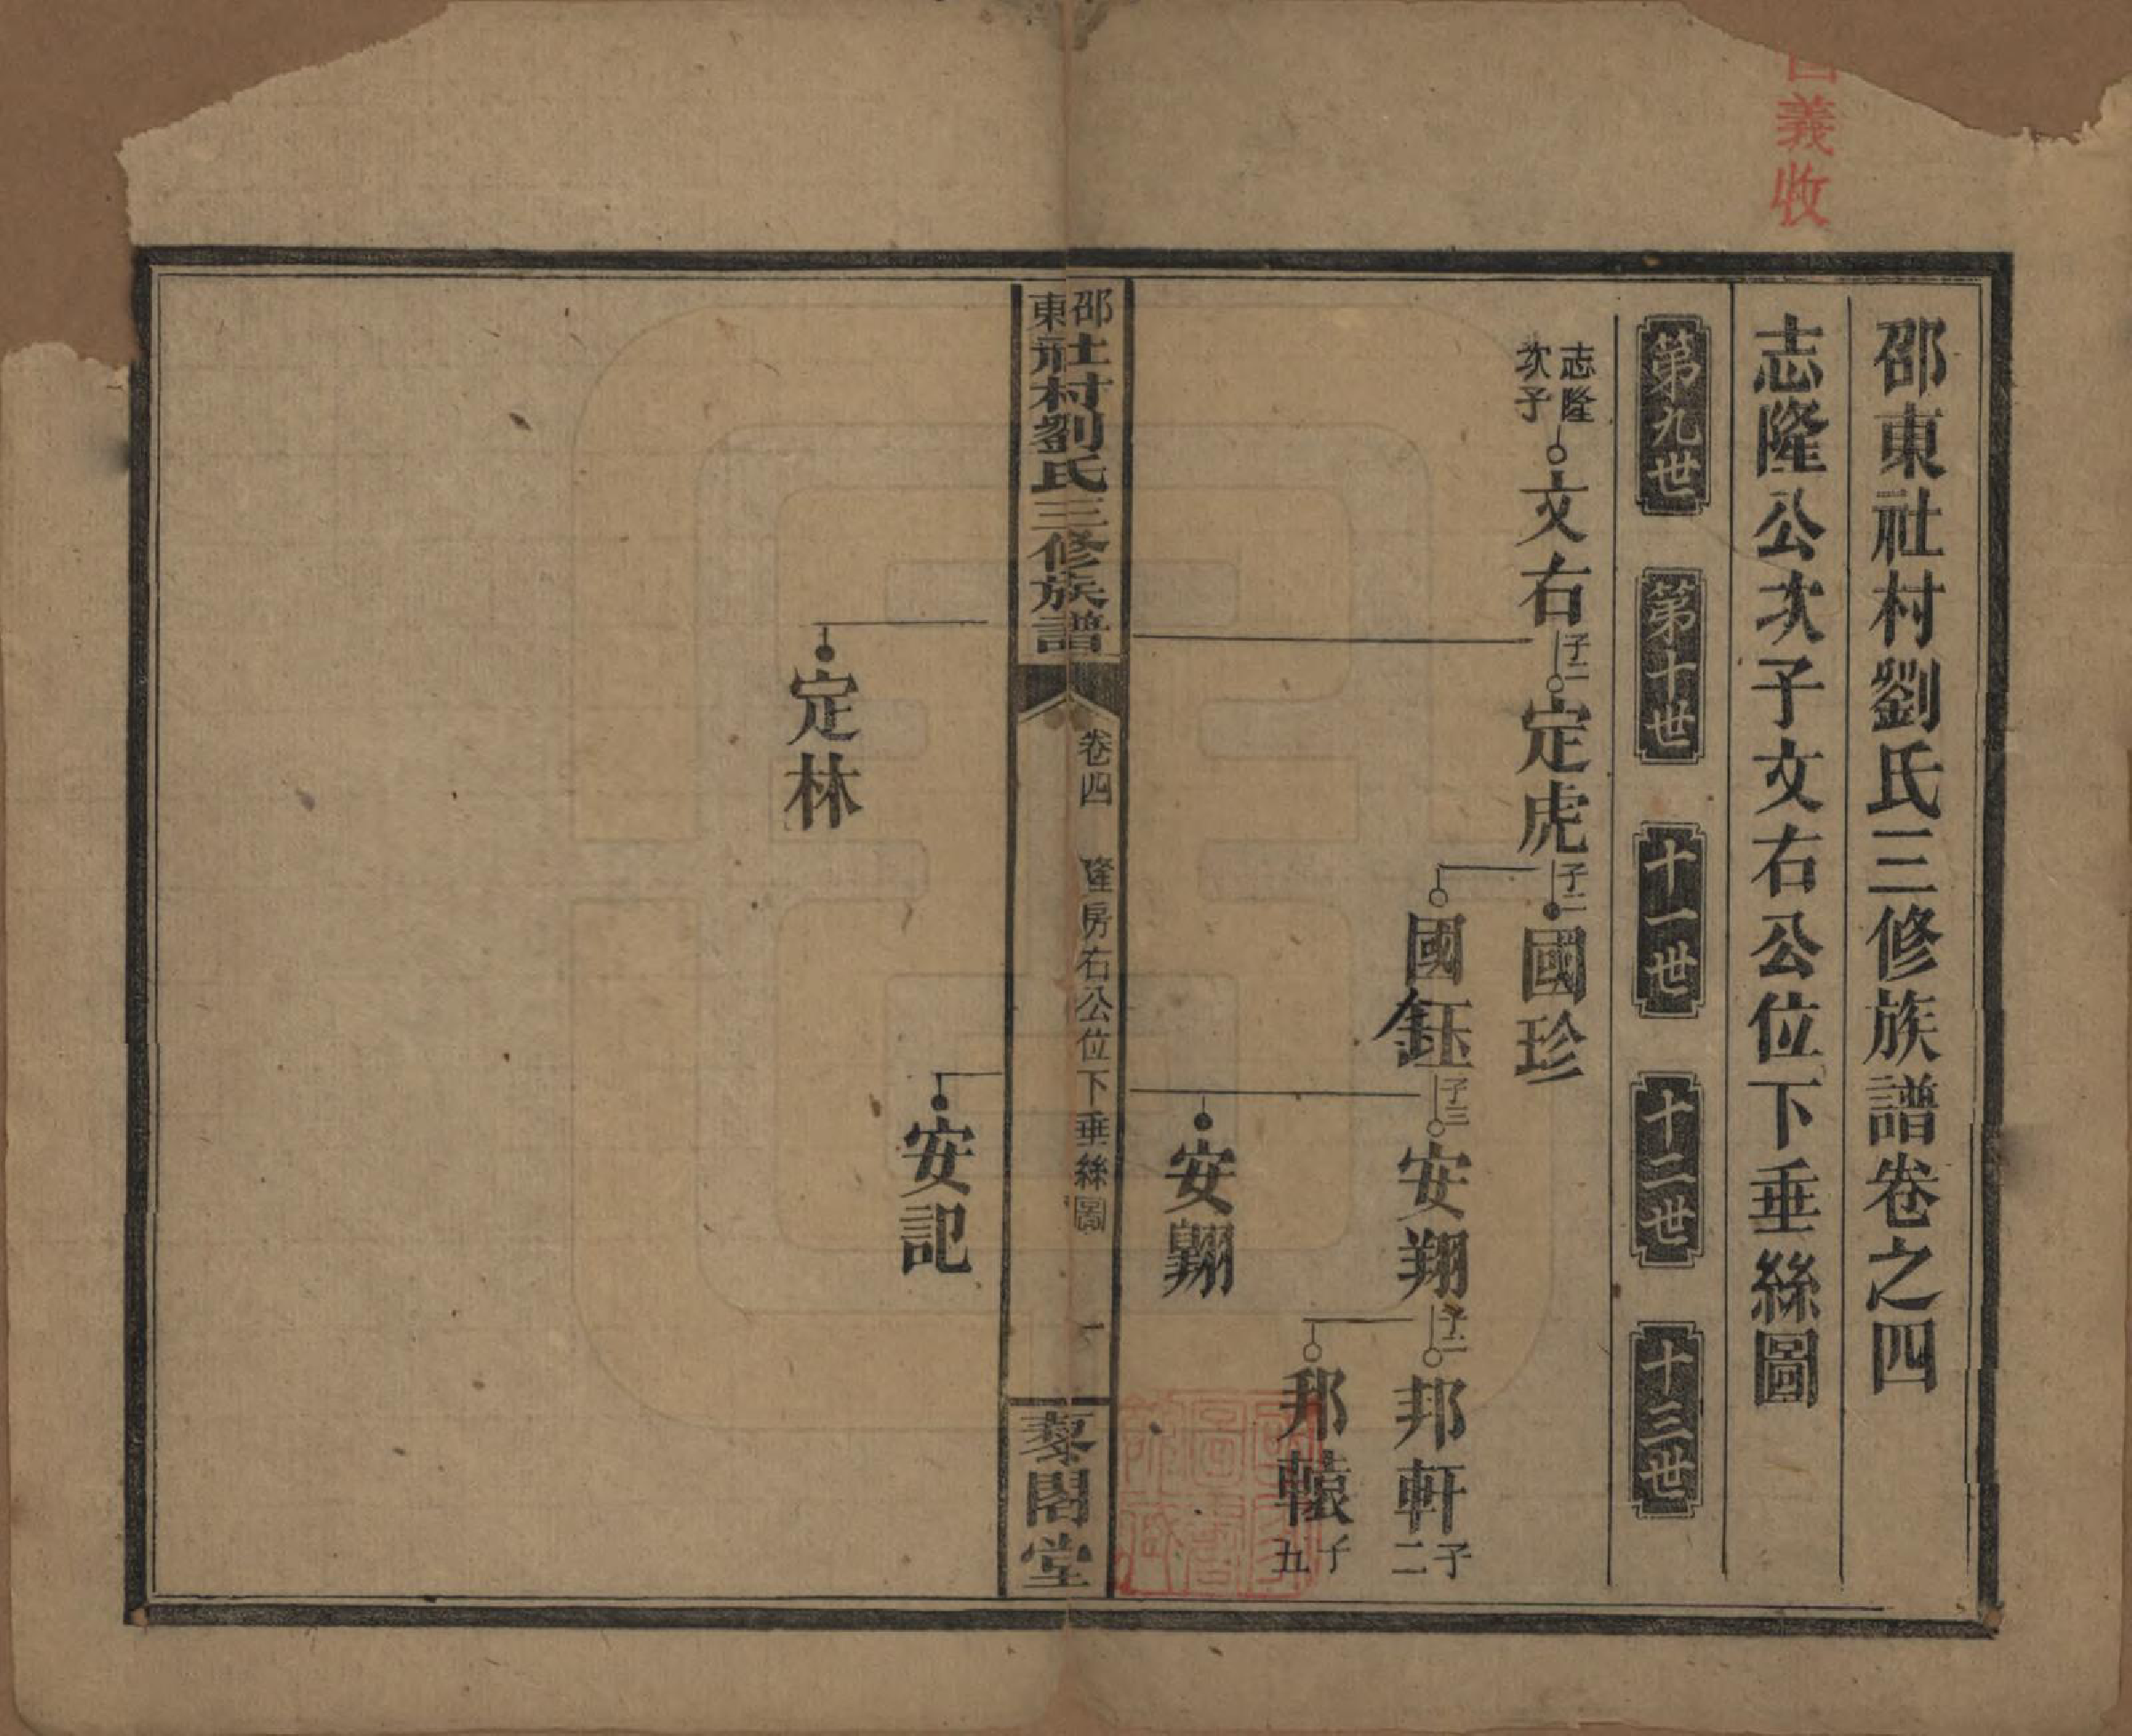 義收
邵東社村劉氏三修族譜卷之四
志隆公次子文右公位下垂絲圖
第九世 第十世 十一世 十二世 十三世
志隆次子 文右 子二 定虎 子二 國珍
國鈺 子三 安翔 子二 邦軒 子二
邦轅 子五
安翶
邵東社村劉氏三修族譜 卷四 隆房右公位下垂絲圖 一 藜閣堂
安記
定林